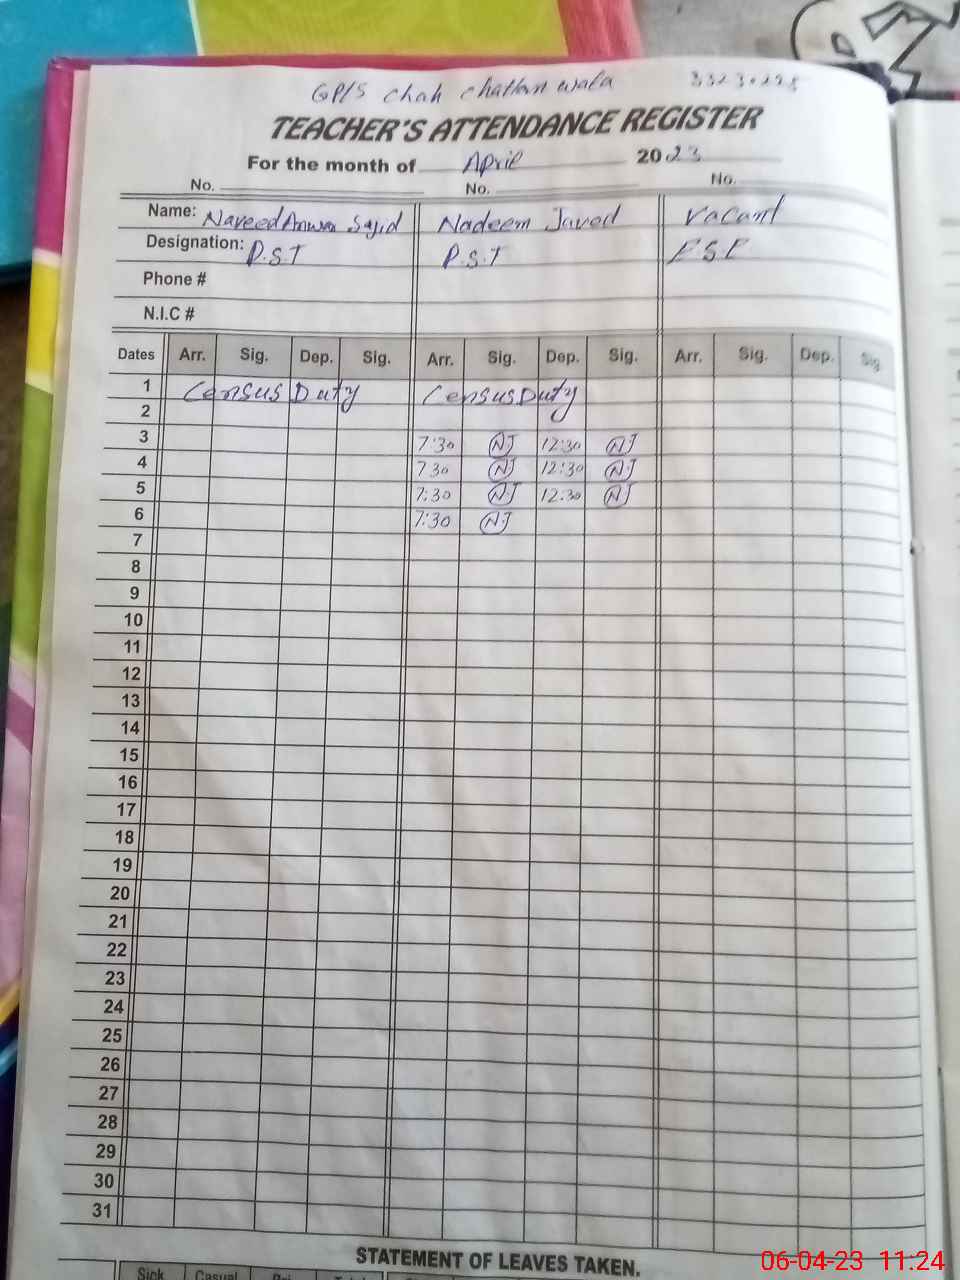 GP/S Chah Chattan wala 33230225
TEACHER'S ATTENDANCE REGISTER
For the month of April 2023
No. No. No.
Name: Naveed Anwar Sajid Nadeem Javed Vacant
Designation: P.S.T P.S.T E S E
Phone #
N.I.C #
Dates Arr. Sig. Dep. Sig. Arr. Sig. Dep. Sig. Arr. Sig. Dep. Sig
1 Census Duty Census Duty
2
3 7:30 NJ 12:30 NJ
4 7 30 NJ 12:30 NJ
5 7:30 NJ 12:30 NJ
6 7:30 NJ
7
8
9
10
11
12
13
14
15
16
17
18
19
20
21
22
23
24
25
26
27
28
29
30
31
STATEMENT OF LEAVES TAKEN.
Sick Casual
06-04-23 11:24